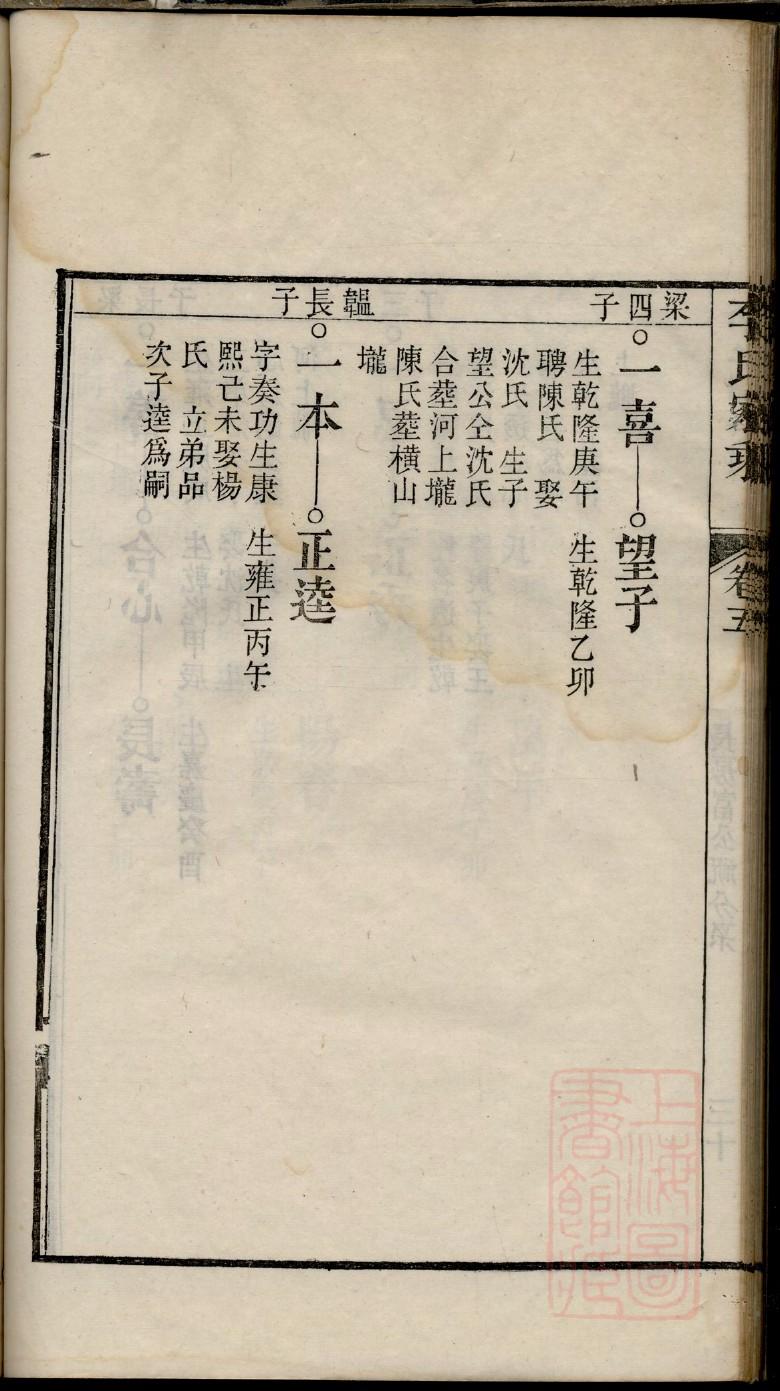 李氏家
卷五
梁四子
一喜 望子
生乾隆庚午 生乾隆乙卯
聘陳氏 娶
沈氏 生子
望公仝沈氏
合塟河上壠
陳氏塟橫山
壠
韞長子
一本 正逵
字奏功生康 生雍正丙午
熙己未娶楊
氏 立弟品
次子逵爲嗣
上海圖
書館藏